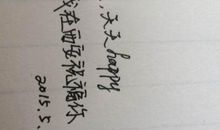 ,天天happy
我在西安祝福你
2015.5.